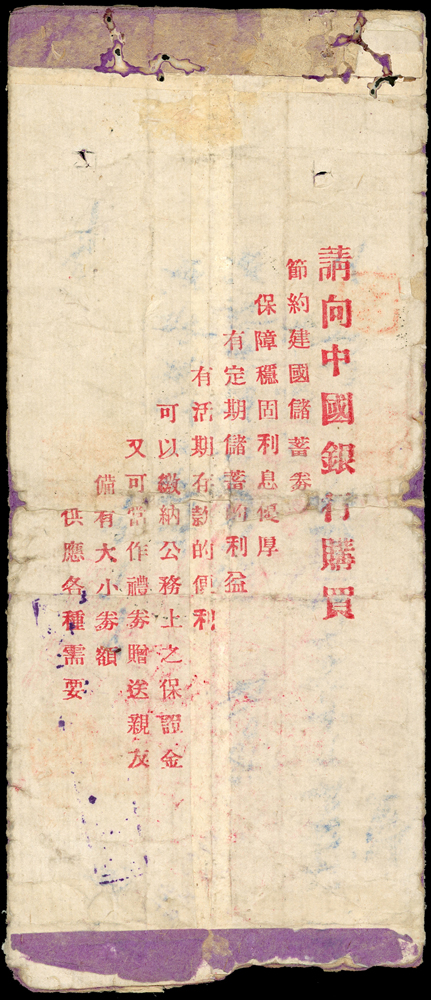 請向中國銀行購買
節約建國儲蓄劵
保障穩固利息優厚
有定期儲蓄的利益
有活期存款的便利
可以繳納公務上之保證金
又可當作禮劵贈送親友
備有大小劵額
供應各種需要